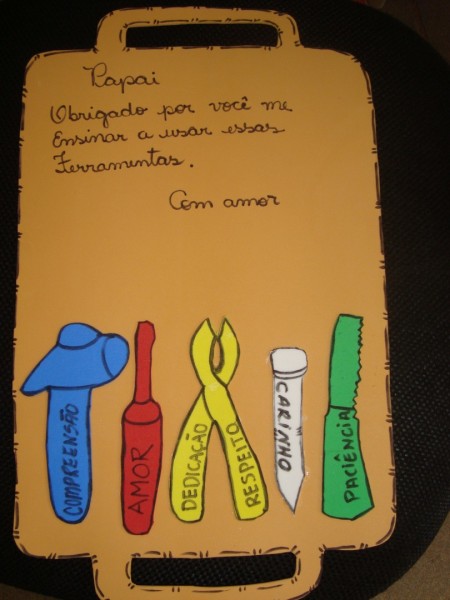 Papai
Obrigado por você me
Ensinar a usar essas
Ferramentas.
Com amor
COMPREENSÃO
AMOR
DEDICAÇÃO
RESPEITO
CARINHO
PACIÊNCIA